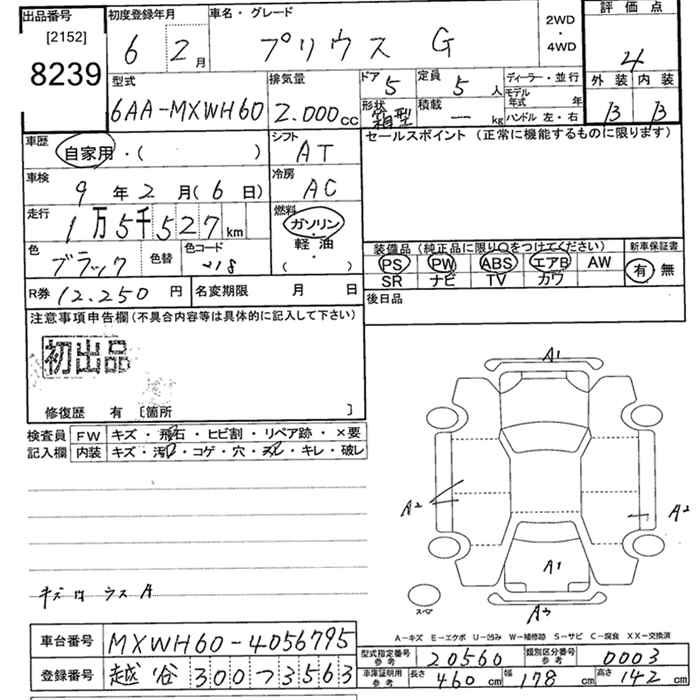 出品番号
[2152]
8239
初度登録年月
6 2月
車名・グレード
プリウス G
2WD
・
4WD
評価点
4
外装 内装
B B
型式
6AA-MXWH60
排気量
2.000cc
ドア 5
形状 箱型
定員 5人
積載 ― kg
ディーラー・並行
モデル年式 年
ハンドル 左・右
車歴
自家用・( )
シフト
AT
車検
9年2月(6日)
冷房
AC
走行
1万5千527km
燃料
ガソリン・
軽油・
( )
色
ブラック
色替
色コード
218
R券 12.250円
名変期限 月 日
セールスポイント(正常に機能するものに限ります)
装備品(純正品に限り○をつけてください)
PS PW ABS エアB AW
SR ナビ TV カワ
新車保証書
有 無
後日品
注意事項申告欄(不具合内容等は具体的に記入して下さい)
初出品
修復歴 有 [箇所 ]
検査員
記入欄
FW キズ・飛石・ヒビ割・リペア跡・×要
内装 キズ・汚・コゲ・穴・・キレ・破レ
キズ ウスA
A1
A2
A2
A1
A3
スペア
A-キズ E-エクボ U-凹み W-補修跡 S-サビ C-腐食 XX-交換済
車台番号 MXWH60-4056795
登録番号 越谷300つ3563
型式指定番号 参考 20560
類別区分番号 参考 0003
車庫証明用 参考 長さ460cm 幅178cm 高さ142cm